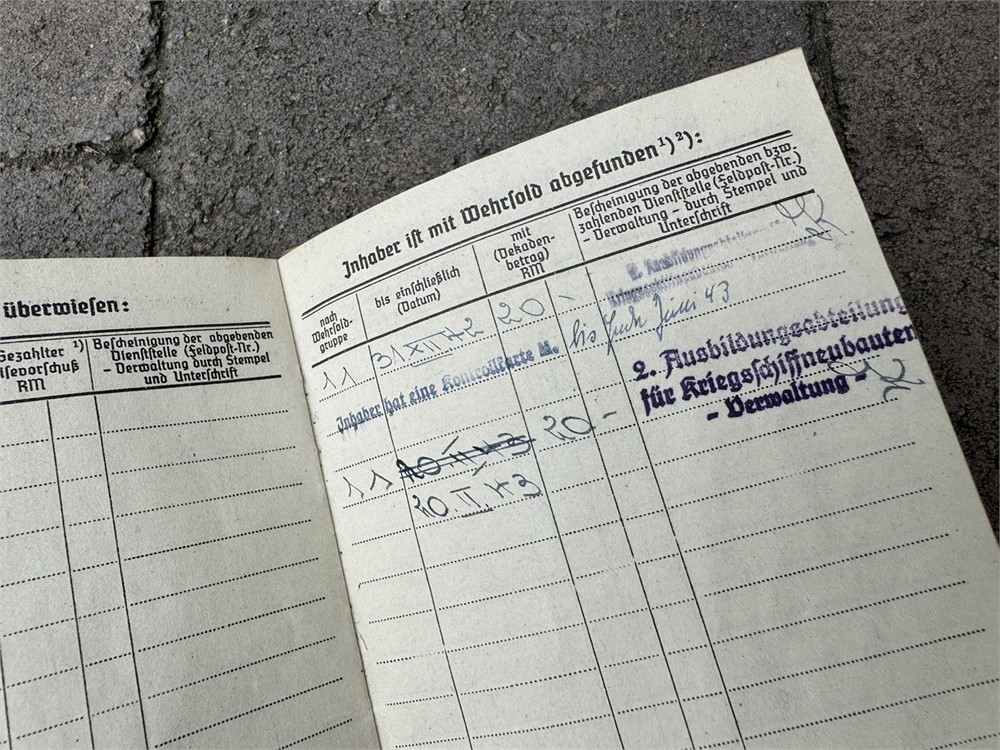 überwiesen:
Gezahlter ¹)
Reisevorschuß
RM
Bescheinigung der abgebenden
Dienststelle (Feldpost-Nr.)
- Verwaltung durch Stempel
und Unterschrift
Inhaber ist mit Wehrsold abgefunden¹)²):
nach
Wehrsold-
gruppe
bis einschließlich
(Datum)
mit
(Dekaden-
betrag)
RM
Bescheinigung der abgebenden bzw.
zahlenden Dienststelle (Feldpost-Nr.)
- Verwaltung - durch Stempel und
Unterschrift
11 31 XII 42 20 -
2. Ausbildungsabteilung
Inhaber hat eine Kontrollkarte M. bis Ende Juni 43
11 20.II 43 20 -
20.II.43
2. Ausbildungsabteilung
für Kriegsschiffneubauten
- Verwaltung -